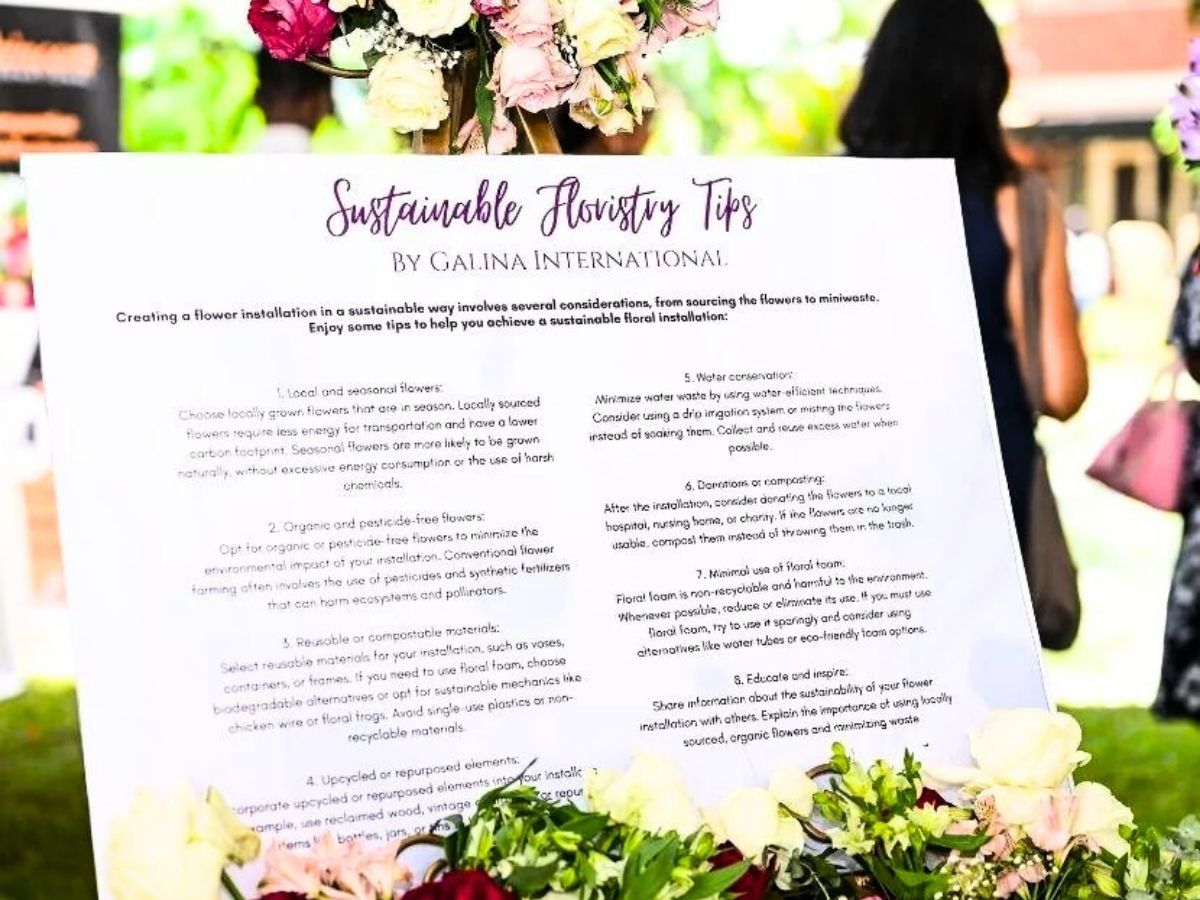 Sustainable Floristry Tips
By Galina International
Creating a flower installation in a sustainable way involves several considerations, from sourcing the flowers to miniwaste.
Enjoy some tips to help you achieve a sustainable floral installation:
1. Local and seasonal flowers:
Choose locally grown flowers that are in season. Locally sourced
flowers require less energy for transportation and have a lower
carbon footprint. Seasonal flowers are more likely to be grown
naturally, without excessive energy consumption or the use of harsh
chemicals.
2. Organic and pesticide-free flowers:
Opt for organic or pesticide-free flowers to minimize the
environmental impact of your installation. Conventional flower
farming often involves the use of pesticides and synthetic fertilizers
that can harm ecosystems and pollinators.
3. Reusable or compostable materials:
Select reusable materials for your installation, such as vases,
containers, or frames. If you need to use floral foam, choose
biodegradable alternatives or opt for sustainable mechanics like
chicken wire or floral frogs. Avoid single-use plastics or non-
recyclable materials.
4. Upcycled or repurposed elements:
corporate upcycled or repurposed elements into your install
ample, use reclaimed wood, vintage or repur
items bottles, jars, or
5. Water conservation:
Minimize water waste by using water-efficient techniques.
Consider using a drip irrigation system or misting the flowers
instead of soaking them. Collect and reuse excess water when
possible.
6. Donations or composting:
After the installation, consider donating the flowers to a local
hospital, nursing home, or charity. If the flowers are no longer
usable, compost them instead of throwing them in the trash.
7. Minimal use of floral foam:
Floral foam is non-recyclable and harmful to the environment.
Whenever possible, reduce or eliminate its use. If you must use
floral foam, try to use it sparingly and consider using
alternatives like water tubes or eco-friendly foam options.
8. Educate and inspire:
Share information about the sustainability of your flower
installation with others. Explain the importance of using locally
sourced, organic flowers and minimizing waste